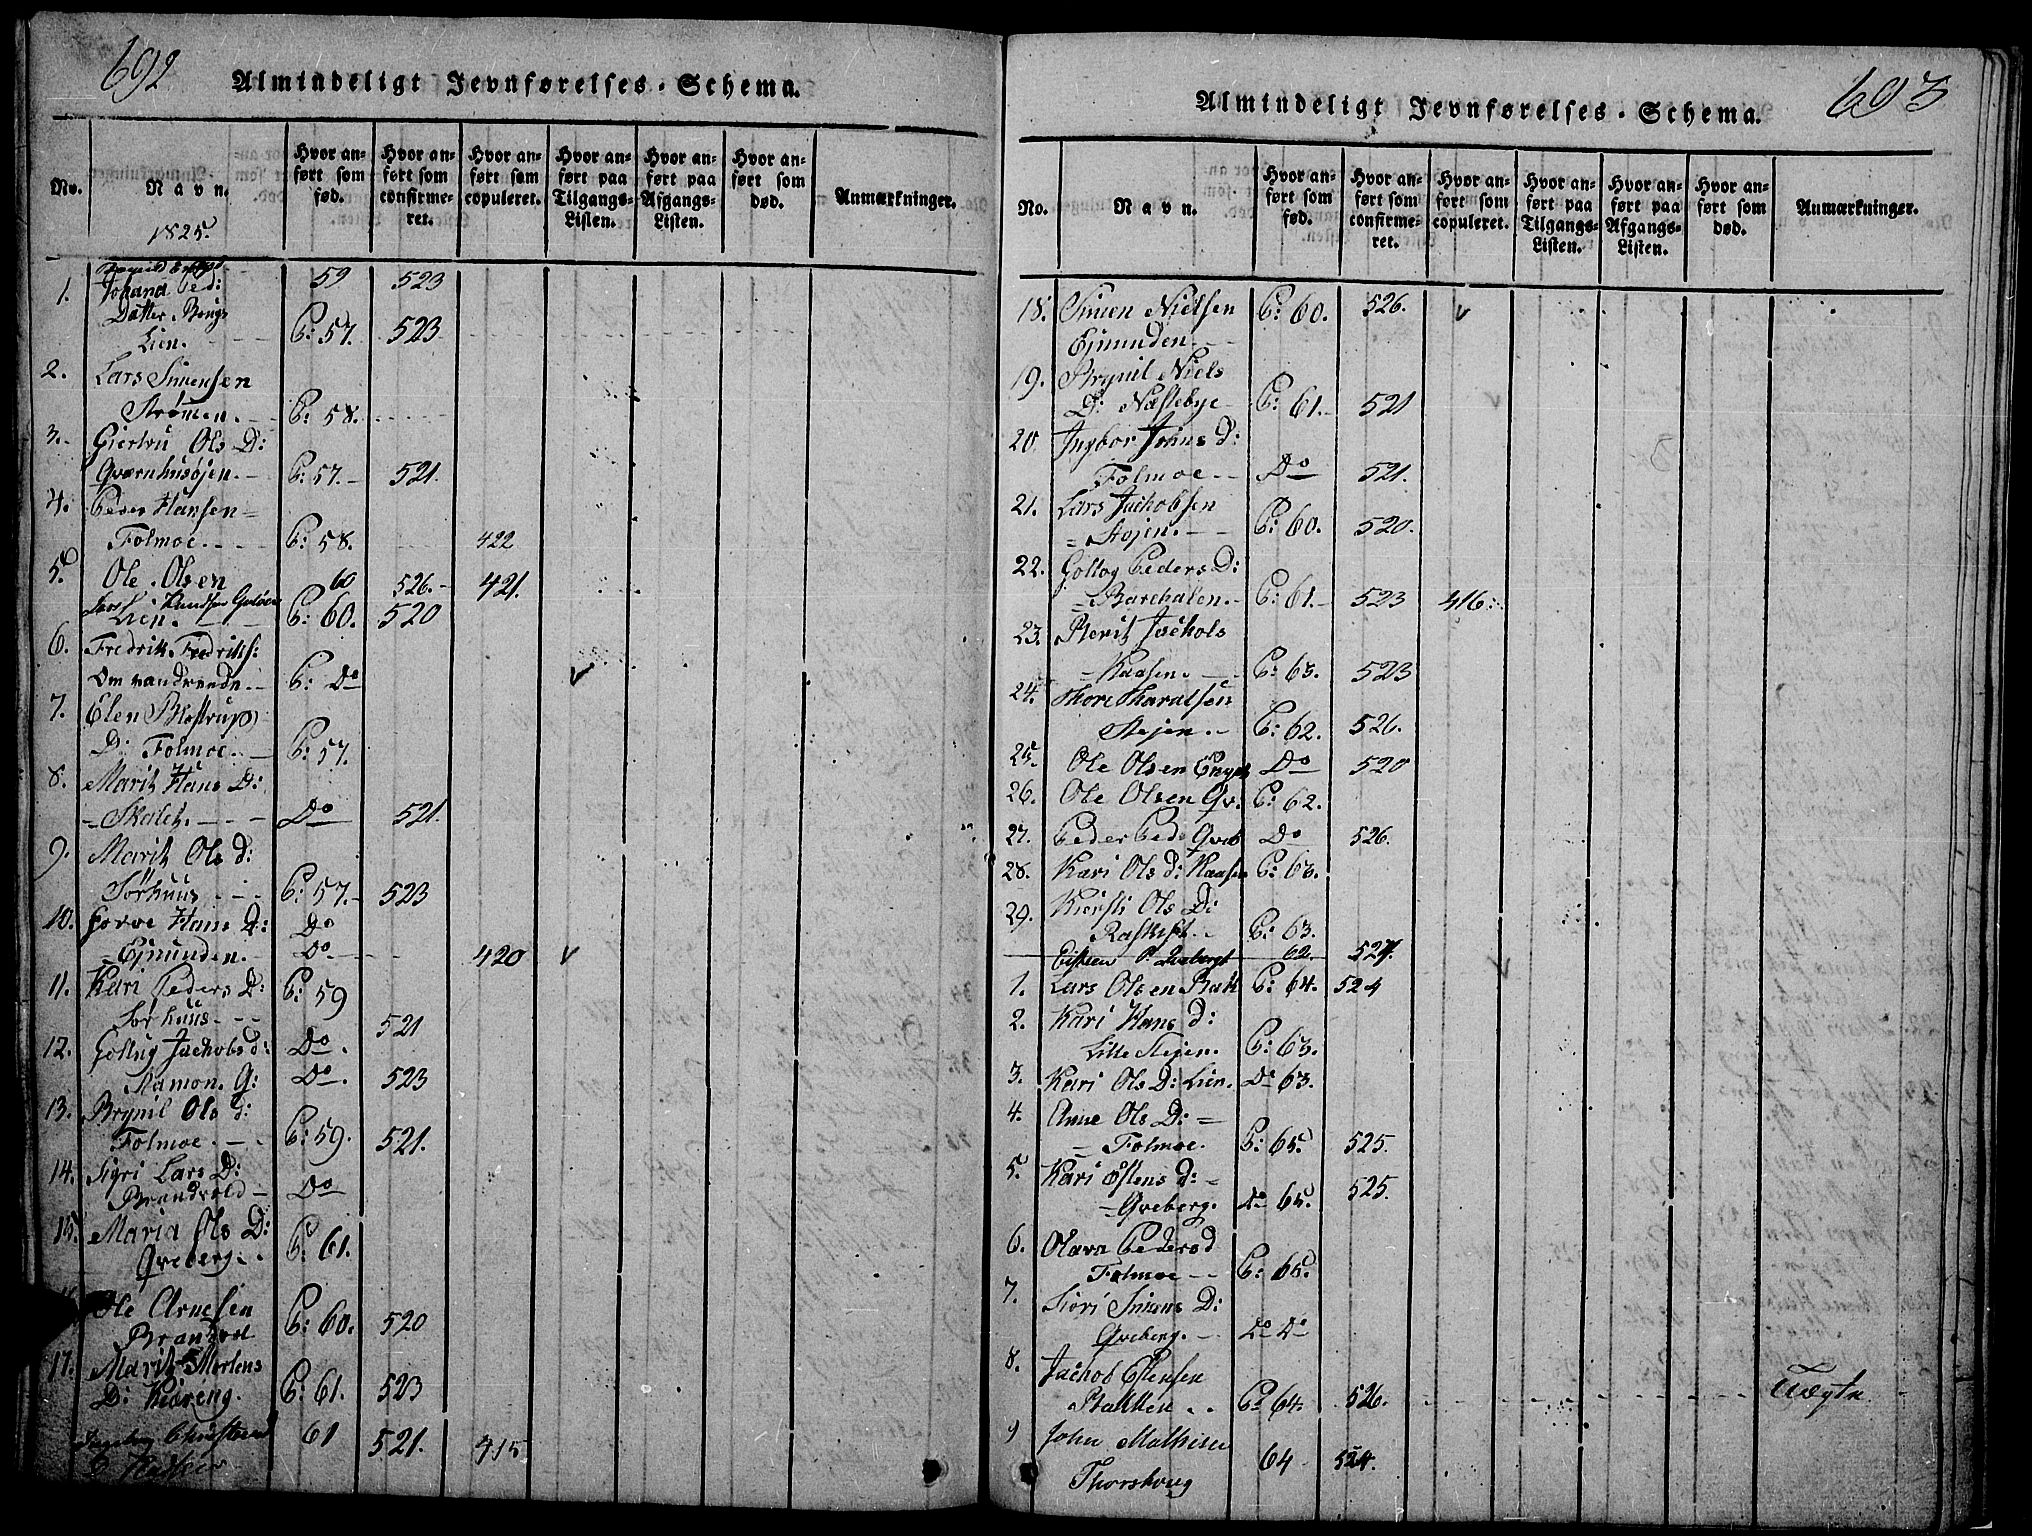 692
Almindeligt Jevnførelses-Schema.
No.
Navn.
1825.
Hvor anført som fød.
Hvor anført som confirmeret.
Hvor anført som copuleret.
Hvor anført paa Tilgangs-Listen.
Hvor anført paa Afgangs-Listen.
Hvor anført som død.
Anmærkninger.
59 523
1. Johana Ped:
Datter
Lien. P: 57. 523
2. Lars Simensen
Strømen. P: 58.
3. Giertru Ols D:
Qværnhusøjen. P: 57. 521.
4. Peder Hansen
Folmoe. P: 58. 422
5. Ole Olsen 60 526. 421.
Lien. P: 60. 520
6. Fredrik Fredriks:
Om vandrende P: Do v
7. Elen
D: Folmoe. P: 57.
8. Marit Hans D:
Skalet. Do 521.
9. Marit Ols d:
Sørhuus P: 57. 523
10. Hans D: Do
Ejmunden. Do 420 v
11. Kari Peders D: P: 59
Sørhuus. 521
12. Gollug Jachobs d: Do.
Aamon. G: Do. 523
13. Brynil Ols d:
Folmoe. P: 59. 521.
14. Sigri Lars D:
Brandvold Do
15. Maria Ols D:
Qveberg. P: 61.
Ole Arnesen
Brandvol P: 60. 520
17. Marit Mortens
D: Kiæreng. P: 61. 523
61 521. 415
603
Almindeligt Jevnførelses-Schema.
No.
Navn.
Hvor anført som fød.
Hvor anført som confirmeret.
Hvor anført som copuleret.
Hvor anført paa Tilgangs-Listen.
Hvor anført paa Afgangs-Listen.
Hvor anført som død.
Anmærkninger.
18. Simen Nielsen P: 60. 526. v
Ejmunden.
19. Brynil Niels
D: Næslebye P: 61. 521 v
20 Ingbor Johns d:
Folmoe Do 521.
21. Lars Jachobsen
Støjen. P: 60. 520.
22. Gollog Peders D:
P: 61. 523 416
23. Berit Jachobs
Kaasen. P: 63. 523
24. Thore Haralsen
Støjen. P: 62. 526.
25. Ole Olsen Do 520
26. Ole Olsen Qv. P: 62.
27. Peder Ped: Qveb Do 526.
28. Kari Ols d: Kaasen P: 63.
29. Kiersti Ols D:
P: 63.
62 527. v
1. Lars Olsen P: 64. 524
2. Kari Hans d:
Lille Støjen. P: 63.
3. Kari Ols D: Lien. Do 63.
4. Anne Ols D:
Folmoe. P: 65. 525.
5. Kari Estens d:
Qveberg. Do 65. 525.
6. Olava Peders d
Folmoe P: 65.
7. Siori Simens D:
Qveberg. Do Do
8. Jachob Estensen
Bakken P: 64. 526.
9 John Mathisen 64 524.
Thorshoug